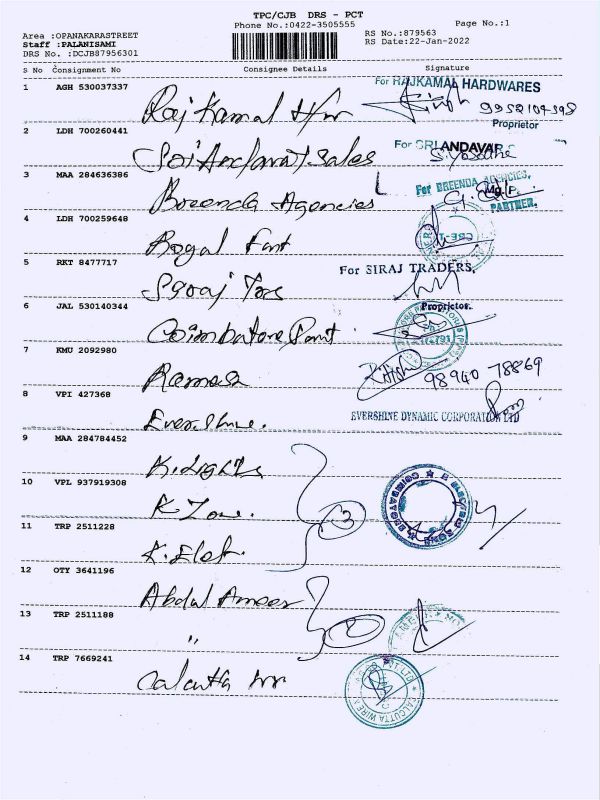 TPC/CJB DRS - PCT
Phone No.:0422-3505555
Page No.:1
Area :OPANAKARASTREET
Staff :PALANISAMI
DRS No. :DCJB87956301
RS No.:879563
RS Date:22-Jan-2022
S No Consignment No Consignee Details Signature
1 AGH 530037337
Raj Kamal H/w
For RAJKAMAL HARDWARES
Proprietor
2 LDH 700260441
Sri Andavar Sales
For SRI ANDAVAR
3 MAA 284636386
Breenda Agencies
For BREENDA AGENCIES,
PARTNER.
4 LDH 700259648
Royal
5 RKT 8477717
For SIRAJ TRADERS,
Proprietor.
6 JAL 530140344
Coimbatore
7 KMU 2092980
98940 78869
8 VPI 427368
Evershine.
EVERSHINE DYNAMIC CORPORATION LTD
9 MAA 284784452
K. Lights
10 VPL 937919308
K Zone.
3
11 TRP 2511228
K. Elet.
12 OTY 3641196
Abdul Ameer
13 TRP 2511188
"
2
14 TRP 7669241
Calcutta